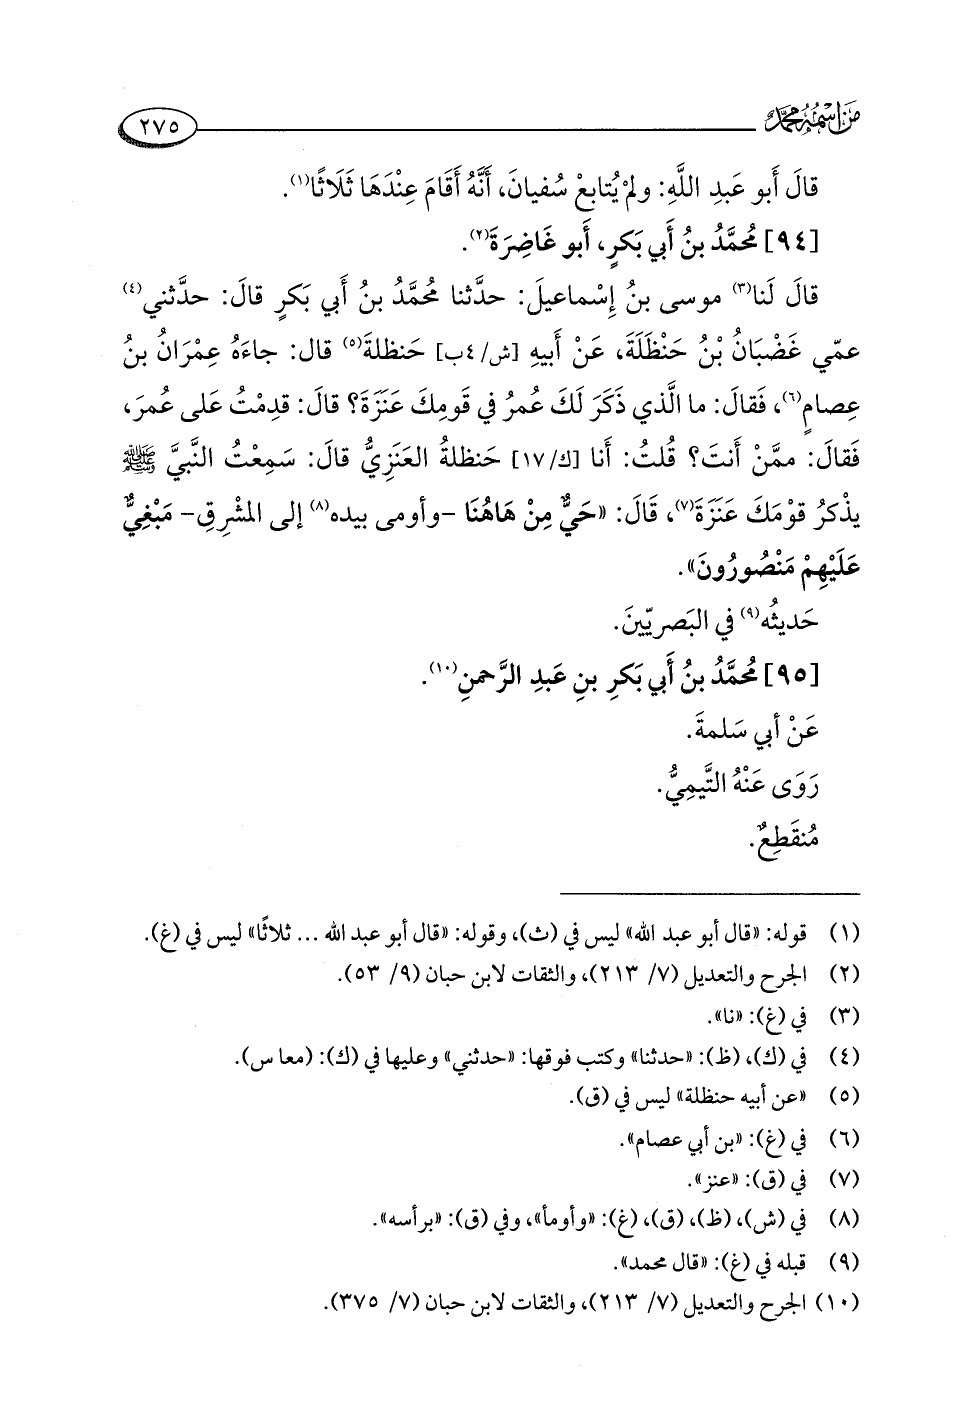 مَن اسْمُهُ مُحَمَّد ٢٧٥
قالَ أَبو عَبدِ اللَّهِ: ولمْ يُتابعْ سُفيانَ، أَنَّهُ أَقَامَ عِنْدَهَا ثَلَاثًا(١).
[٩٤] مُحمَّدُ بنُ أَبي بَكرٍ، أَبو غَاضِرَةَ(٢).
قالَ لَنا(٣) موسى بنُ إِسْماعيلَ: حدَّثنا مُحمَّدُ بنُ أَبي بَكرٍ قالَ: حدَّثني(٤)
عمّي غَضْبَانُ بْنُ حَنْظَلَةَ، عَنْ أَبيهِ [ش/ ٤ب] حَنظلةَ(٥) قال: جاءَهُ عِمْرَانُ بنُ
عِصامٍ(٦)، فَقالَ: ما الَّذي ذَكَرَ لَكَ عمرُ في قَومِكَ عَنَزَةَ؟ قالَ: قدِمْتُ على عُمرَ،
فَقالَ: ممَّنْ أَنتَ؟ قُلتُ: أَنا [ك/ ١٧] حَنظلةُ العَنَزِيُّ قالَ: سَمِعْتُ النَّبيَّ ﷺ
يذْكرُ قوْمَكَ عَنَزَةَ(٧)، قَالَ: «حَيٌّ مِنْ هَاهُنَا -وأومى بيده(٨) إلى المشْرِقِ- مَبْغِيٌّ
عَلَيْهِمْ مَنْصُورُونَ».
حَديثُه(٩) في البَصريّينَ.
[٩٥] مُحمَّدُ بنُ أَبي بَكرِ بنِ عَبدِ الرَّحمنِ(١٠).
عَنْ أبي سَلمةَ.
رَوَى عَنْهُ التَّيمِيُّ.
مُنقَطِعٌ.
(١) قوله: «قال أبو عبد الله» ليس في (ث)، وقوله: «قال أبو عبد الله ... ثلاثًا» ليس في (غ).
(٢) الجرح والتعديل (٧/ ٢١٣)، والثقات لابن حبان (٩/ ٥٣).
(٣) في (غ): «نا».
(٤) في (ك)، (ظ): «حدثنا» وكتب فوقها: «حدثني» وعليها في (ك): (معا س).
(٥) «عن أبيه حنظلة» ليس في (ق).
(٦) في (غ): «بن أبي عصام».
(٧) في (ق): «عنز».
(٨) في (ش)، (ظ)، (ق)، (غ): «وأومأ»، وفي (ق): «برأسه».
(٩) قبله في (غ): «قال محمد».
(١٠) الجرح والتعديل (٧/ ٢١٣)، والثقات لابن حبان (٧/ ٣٧٥).